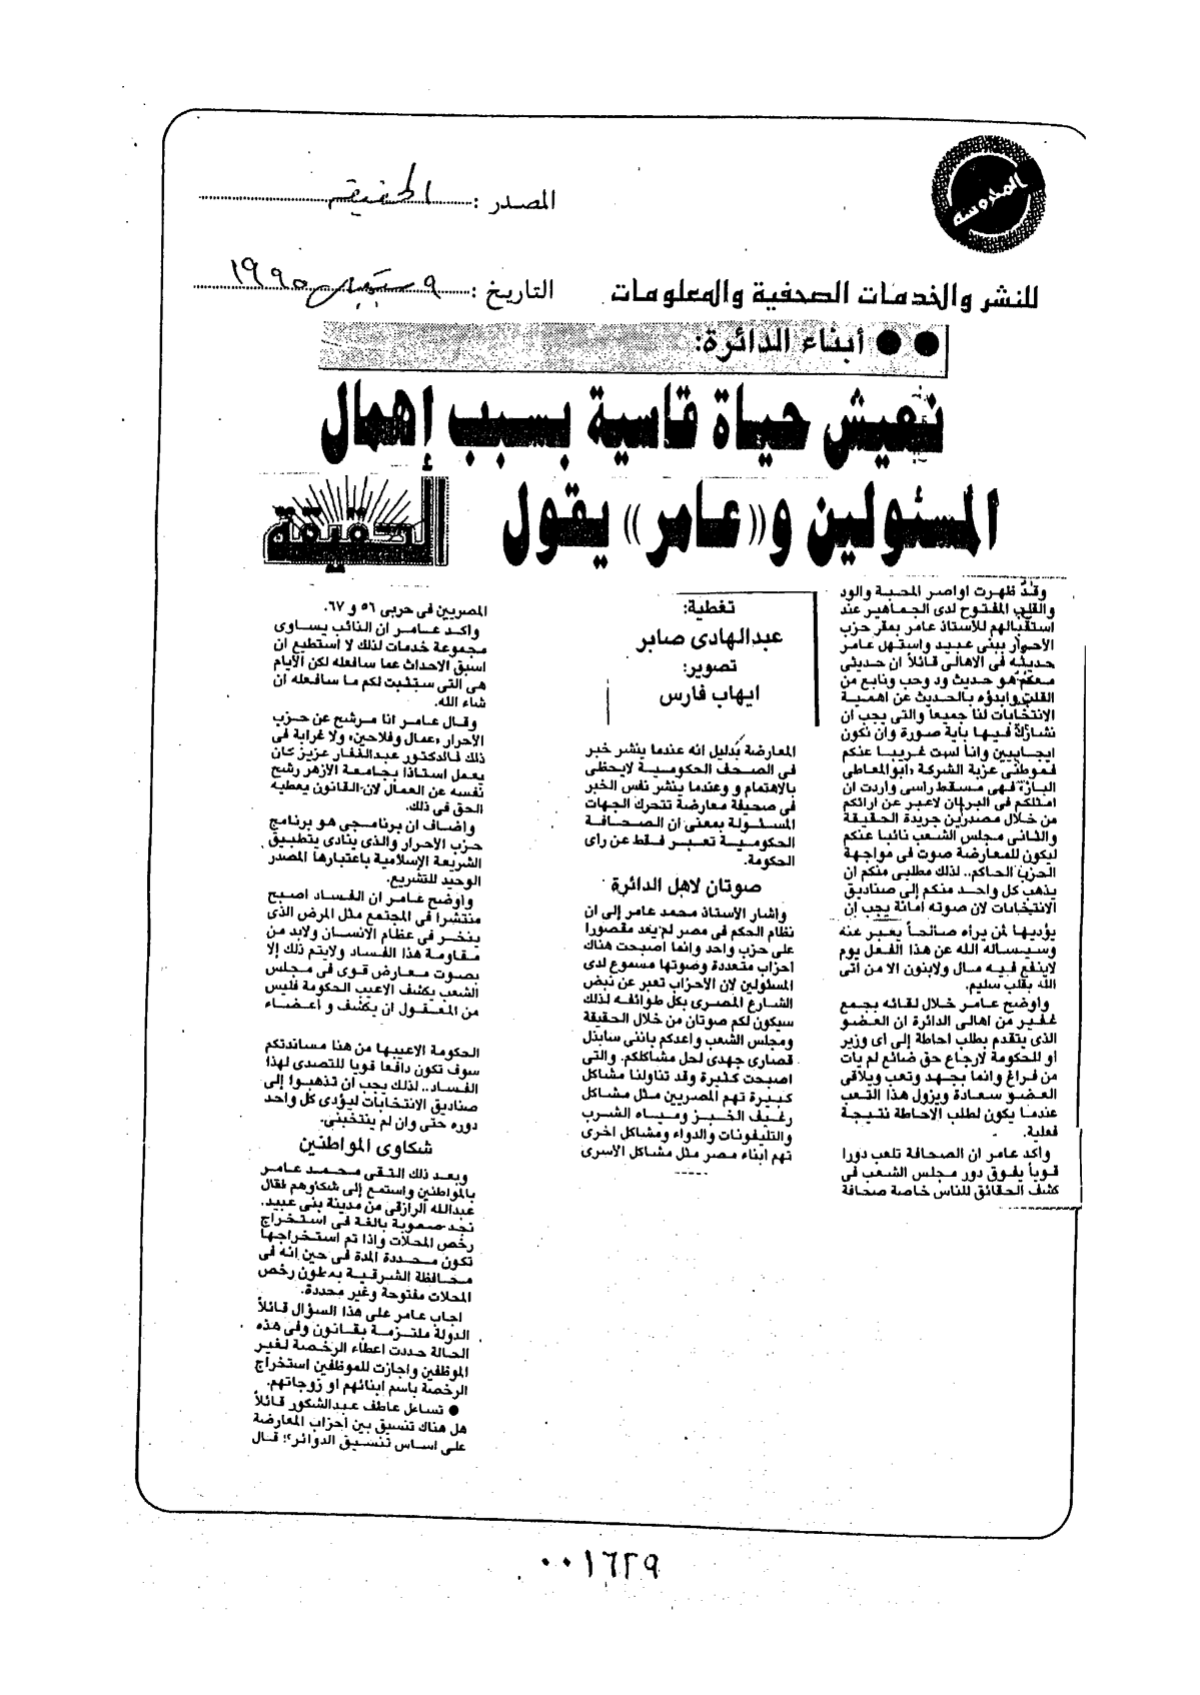 المحروسة
المصدر : الحقيقة
للنشر والخدمات الصحفية والمعلومات
التاريخ : ٩ سبتمبر ١٩٩٥
●● أبناء الدائرة:
نعيش حياة قاسية بسبب إهمال
المسئولين و«عامر» يقول
الحقيقة
وقد ظهرت اواصر المحبة والود
والقلب المفتوح لدى الجماهير عند
استقبالهم للأستاذ عامر بمقر حزب
الأحرار ببنى عبيد واستهل عامر
حديثه فى الاهالى قائلاً ان حديثى
معكم هو حديث ود وحب ونابع من
القلب وابدؤه بالحديث عن اهمية
الانتخابات لنا جميعاً والتى يجب ان
نشارك فيها بأية صورة وان نكون
ايجابيين وانا لست غريبا عنكم
فموطنى عزبة الشركة «ابوالمعاطى
الباز» فهى مسقط راسى واردت ان
امثلكم فى البرلمان لاعبر عن ارائكم
من خلال مصدرين جريدة الحقيقة
والثانى مجلس الشعب نائبا عنكم
ليكون للمعارضة صوت فى مواجهة
الحزب الحاكم.. لذلك مطلبى منكم ان
يذهب كل واحد منكم إلى صناديق
الانتخابات لان صوته امانة يجب ان
يؤديها لمن يراه صالحاً يعبر عنه
وسيسأله الله عن هذا الفعل يوم
لاينفع فيه مال ولابنون الا من اتى
الله بقلب سليم.
واوضح عامر خلال لقائه بجمع
غفير من اهالى الدائرة ان العضو
الذى يتقدم بطلب احاطة إلى أى وزير
او للحكومة لارجاع حق ضائع لم يات
من فراغ وانما بجهد وتعب ويلاقى
العضو سعادة ويزول هذا التعب
عندما يكون لطلب الاحاطة نتيجة
فعلية.
واكد عامر ان الصحافة تلعب دورا
قوياً يفوق دور مجلس الشعب فى
كشف الحقائق للناس خاصة صحافة
تغطية:
عبدالهادى صابر
تصوير:
ايهاب فارس
المعارضة بدليل انه عندما ينشر خبر
فى الصحف الحكومية لايحظى
بالاهتمام و وعندما ينشر نفس الخبر
فى صحيفة معارضة تتحرك الجهات
المسئولة بمعنى ان الصحافة
الحكومية تعبر فقط عن راى
الحكومة.
صوتان لاهل الدائرة
واشار الاستاذ محمد عامر إلى ان
نظام الحكم فى مصر لم يعد مقصورا
على حزب واحد وانما اصبحت هناك
احزاب متعددة وصوتها مسموع لدى
المسئولين لان الأحزاب تعبر عن نبض
الشارع المصرى بكل طوائفه لذلك
سيكون لكم صوتان من خلال الحقيقة
ومجلس الشعب واعدكم باننى سابذل
قصارى جهدى لحل مشاكلكم. والتى
اصبحت كثيرة وقد تناولنا مشاكل
كبيرة تهم المصريين مثل مشاكل
رغيف الخبز ومياه الشرب
والتليفونات والدواء ومشاكل اخرى
تهم ابناء مصر مثل مشاكل الأسرى
المصريين فى حربى ٥٦ و ٦٧.
واكد عامر ان النائب يساوى
مجموعة خدمات لذلك لا استطيع ان
اسبق الاحداث عما سافعله لكن الأيام
هى التى ستثبت لكم ما سافعله ان
شاء الله.
وقال عامر انا مرشح عن حزب
الأحرار «عمال وفلاحين» ولا غرابة فى
ذلك فالدكتور عبدالغفار عزيز كان
يعمل استاذا بجامعة الأزهر رشح
نفسه عن العمال لان القانون يعطيه
الحق فى ذلك.
واضاف ان برنامجى هو برنامج
حزب الاحرار والذى ينادى بتطبيق
الشريعة الإسلامية باعتبارها المصدر
الوحيد للتشريع.
واوضح عامر ان الفساد اصبح
منتشرا فى المجتمع مثل المرض الذى
ينخر فى عظام الانسان ولابد من
مقاومة هذا الفساد ولايتم ذلك إلا
بصوت معارض قوى فى مجلس
الشعب يكشف الاعيب الحكومة فليس
من المعقول ان يكشف و أعضاء
الحكومة الاعيبها من هنا مساندتكم
سوف تكون دافعا قويا للتصدى لهذا
الفساد.. لذلك يجب ان تذهبوا إلى
صناديق الانتخابات ليؤدى كل واحد
دوره حتى وان لم ينتخبنى.
شكاوى المواطنين
وبعد ذلك التقى محمد عامر
بالمواطنين واستمع إلى شكاوهم فقال
عبدالله الرازقى من مدينة بنى عبيد.
نجد صعوبة بالغة فى استخراج
رخص المحلات واذا تم استخراجها
تكون محددة المدة فى حين انه فى
محافظة الشرقية يعطون رخص
المحلات مفتوحة وغير محددة.
اجاب عامر على هذا السؤال قائلاً
الدولة ملتزمة بقانون وفى هذه
الحالة حددت اعطاء الرخصة لغير
الموظفين واجازت للموظفين استخراج
الرخصة باسم ابنائهم او زوجاتهم.
● تساءل عاطف عبدالشكور قائلاً
هل هناك تنسيق بين أحزاب المعارضة
على اساس تنسيق الدوائر؟؛ قال
٠٠١٦٢٩